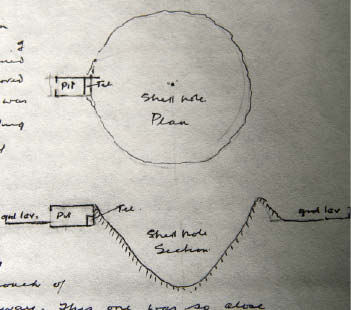 was
Pit Tel
Shell hole
Plan
grd lev. Pit Tel. grd lev.
Shell hole
Section
of
This one was so close